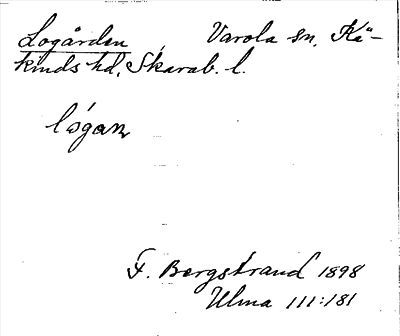 Logården Varola sn, Kå-
kinds hd, Skarab. l.
lógan
F. Bergstrand 1898
Ulma 111:181